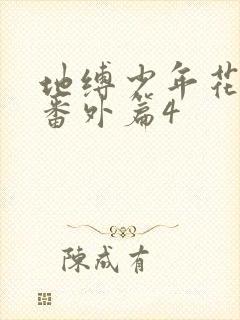 地缚少年花
番外篇4
陳成有